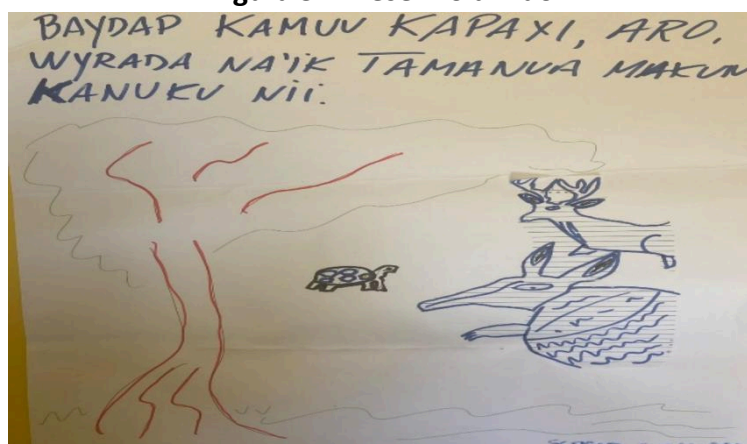 BAYDAP KAMUU KAPAXI, ARO,
WYRADA NA'IK TAMANUA MAKUN
KANUKU NII.